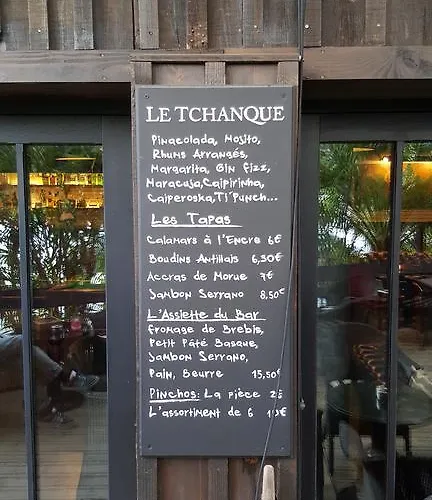 LE TCHANQUE
Pinacolada, Mojito,
Rhums Arrangés,
Margarita, Gin Fizz,
Maracuja, Caipirinha,
Caiperoska, Ti'Punch...
Les Tapas
Calamars à l'Encre 6€
Boudins Antillais 6,50€
Accras de Morue 7€
Jambon Serrano 8,50€
L'Assiette du Bar
Fromage de Brebis,
Petit Pâté Basque,
Jambon Serrano,
Pain, Beurre 15,50€
Pinchos: La pièce 2€
L'assortiment de 6